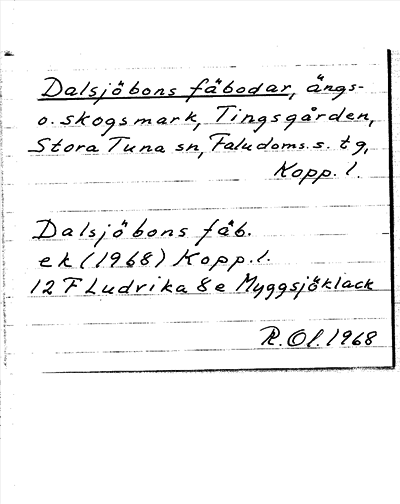 Dalsjöbons fäbodar, ängs-
o. skogsmark, Tingsgården,
Stora Tuna sn, Faludoms. s. tg,
Kopp. l.
Dalsjöbons fäb.
ek (1968) Kopp. l.
12 F Ludvika 8e Myggsjöklack
R. Ol. 1968